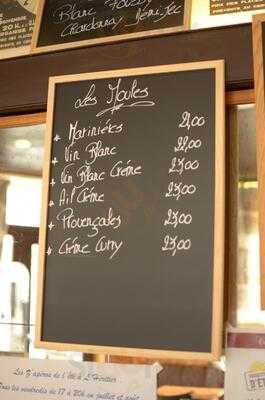 Blanc Fumé
Chardonnay Demi Sec
Les Moules
Marinières 21,00
Vin Blanc 22,00
Vin Blanc Crème 23,00
Ail Crème 23,00
Provençales 23,00
Crème Curry 23,00
Les Z'apéros de l'été à L'Héritier
Tous les vendredis de 17 à 20h en juillet et août